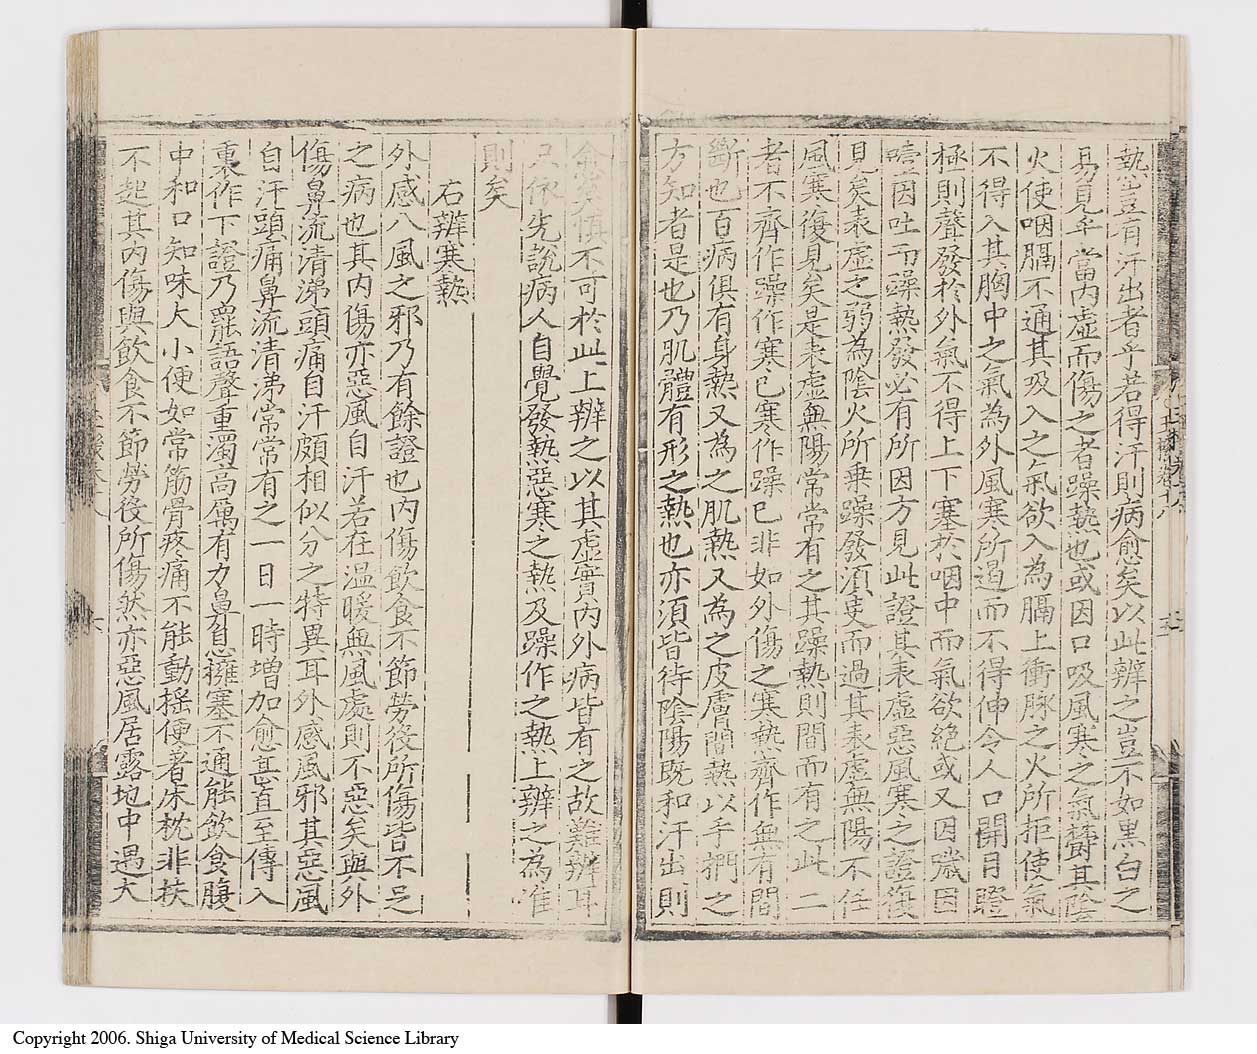 熱豈有汗出者乎若得汗則病愈矣以此辨之豈不如黑白之
易見乎當內虛而傷之者躁熱也或因口吸風寒之氣鬱其陰
火使咽膈不通其吸入之氣欲入為膈上衝脉之火所拒使氣
不得入其胸中之氣為外風寒所遏而不得伸令人口開目瞪
極則聲發於外氣不得上下塞於咽中而氣欲絕或又因噦因
因吐而躁熱發必有所因方見此證其表虛惡風寒之證復
見矣表虛之弱為陰火所乗躁發須㬰而過其表虛無陽不任
風寒復見矣是表虛無陽常常有之其躁熱則間而有之此二
者不齊作躁作寒已寒作躁已非如外傷之寒熱齊作無有間
斷也百病俱有身熱又為之肌熱又為之皮膚間熱以手捫之
方知者是也乃肌體有形之熱也亦須皆待陰陽既和汗出則
愈矣慎不可於此上辨之以其虛實內外病皆有之故難辨耳
只依先說病人自覺發熱惡寒之熱及躁作之熱上辨之為准
則矣
右辨寒熱
外感八風之邪乃有餘證也內傷飲食不節勞役所傷皆不足
之病也其內傷亦惡風自汗若在溫暖無風處則不惡矣與外
傷鼻流清涕頭痛自汗頗相似分之特異耳外感風邪其惡風
自汗頭痛鼻流清涕常常有之一日一時增加愈甚直至傳入
裏作下證乃罷語聲重濁高厲有力鼻息擁塞不通能飲食腹
中和口知味大小便如常筋骨疼痛不能動揺便著床枕非扶
不起其內傷與飲食不節勞役所傷然亦惡風居露地中遇大